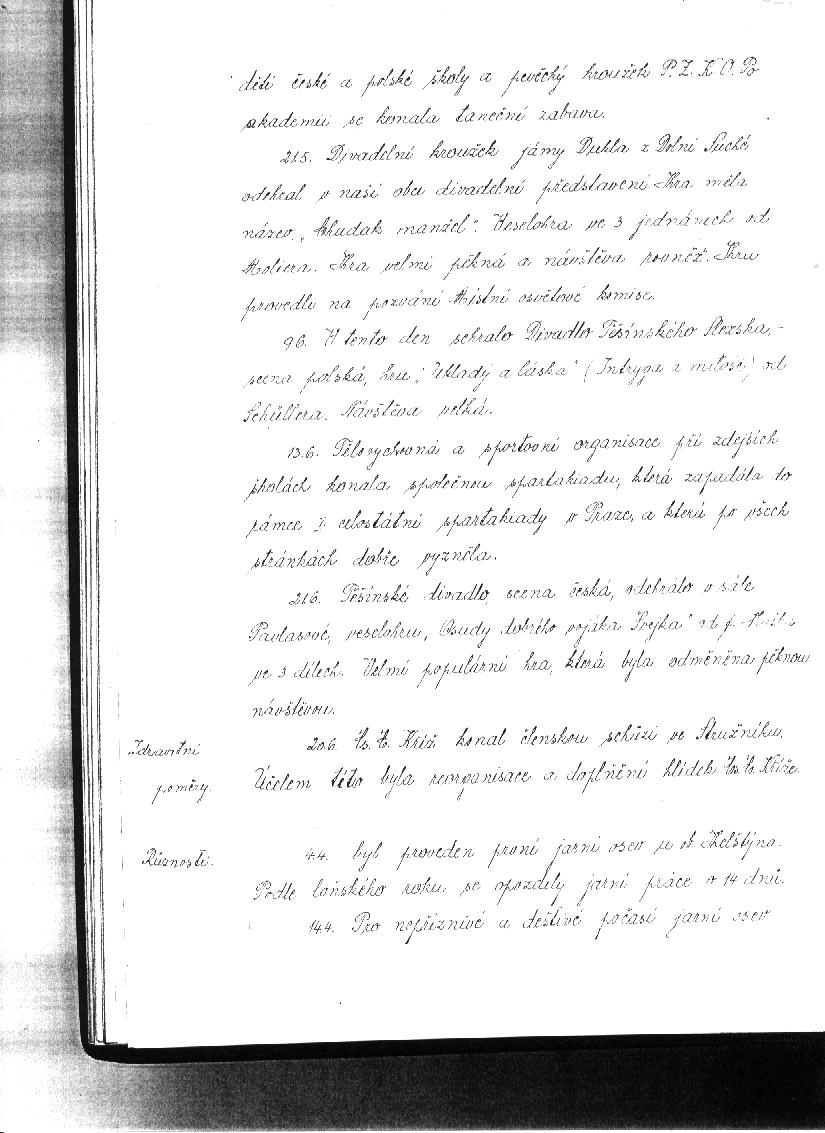 dětí české a polské školy a pěvěcký kroužek P.Z.K.O. Po
akademii se konala taneční zabava.
21.5. Divadelní kroužek jámy Dukla z Dolní Suché
odehral v naší obci divadelní představení Hra měla
název „Chudak manžel". Veselohra ve 3 jednáních od
Moliera. Hra velmi pěkná a návštěva rovněž. Hru
provedli na pozvání Místní osvětové komise.
9.6. V tento den sehralo Divadlo Těšínského Slezska, -
scena polská, hru „Uklady a láska" (Intryga a miłość) od
Schüllera. Návštěva velká.
13.6. Tělovychovná a sportovní organisace při zdejších
školách konala společnou spartakiadu, která zapadála do
rámce I. celostátní spartakiady v Praze, a která po všech
stránkách dobře vyzněla.
21.6. Těšínské divadlo, scena česká, odehrálo v sále
Pavlasové, veselohru „Osudy dobrého vojáka Švejka" od J.
ve 3 dílech. Velmi populární hra, která byla odměněna pěknou
návštěvou.
Zdravotní
poměry.
20.6. Čs. č. Kříž konal členskou schůzi ve Stružníku.
Účelem této byla reorganisace a doplňění hlídek Čs. č. Kříže.
Různosti.
4.4. byl proveden první jarní osev u ob.
Podle loňského roku se opozdily jarní práce o 14 dnů.
14.4. Pro nepříznivé a deštivé počasí jarní osev